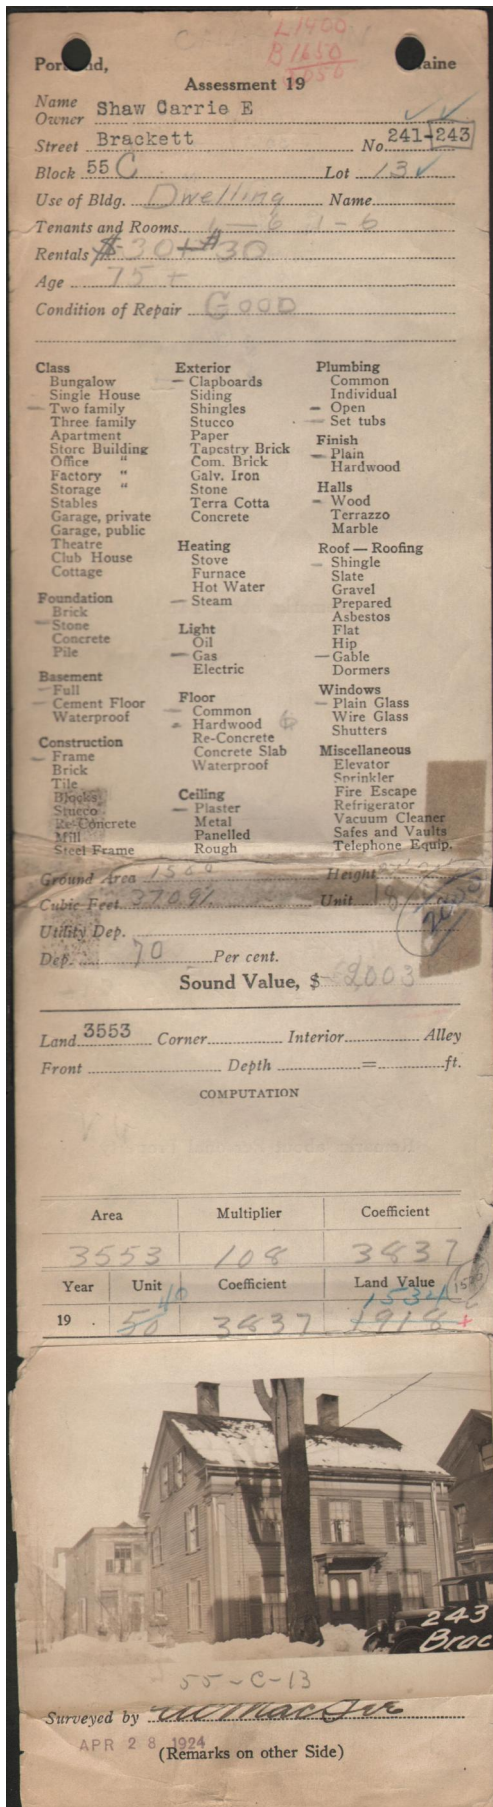 L 1400
B 1650
3050
Portland, Maine
Assessment 19
Name Owner Shaw Carrie E
Street Brackett No. 241-243
Block 55 C Lot 13
Use of Bldg. Dwelling Name
Tenants and Rooms 1-6 1-6
Rentals $30 + $30
Age 75 +
Condition of Repair GOOD
Class
Bungalow
Single House
— Two family
Three family
Apartment
Store Building
Office "
Factory "
Storage "
Stables
Garage, private
Garage, public
Theatre
Club House
Cottage
Foundation
Brick
— Stone
Concrete
Pile
Basement
— Full
— Cement Floor
Waterproof
Construction
— Frame
Brick
Tile
Blocks
Stucco
Re-Concrete
Mill
Steel Frame
Exterior
— Clapboards
Siding
Shingles
Stucco
Paper
Tapestry Brick
Com. Brick
Galv. Iron
Stone
Terra Cotta
Concrete
Heating
Stove
Furnace
Hot Water
— Steam
Light
Oil
— Gas
Electric
Floor
— Common
— Hardwood
Re-Concrete
Concrete Slab
Waterproof
Ceiling
— Plaster
Metal
Panelled
Rough
Plumbing
Common
Individual
— Open
— Set tubs
Finish
— Plain
Hardwood
Halls
— Wood
Terrazzo
Marble
Roof — Roofing
— Shingle
Slate
Gravel
Prepared
Asbestos
Flat
Hip
— Gable
Dormers
Windows
— Plain Glass
Wire Glass
Shutters
Miscellaneous
Elevator
Sprinkler
Fire Escape
Refrigerator
Vacuum Cleaner
Safes and Vaults
Telephone Equip.
Ground Area Height
Cubic Feet 37091 Unit 18
Utility Dep.
Dep. 70 Per cent.
Sound Value, $ 2003
Land 3553 Corner Interior Alley
Front Depth = ft.
COMPUTATION
Area Multiplier Coefficient
3553 108 3837
Year Unit Coefficient Land Value
40 1534
19 50 3837 1918 +
243
Brac
55-C-13
Surveyed by
APR 28 1924
(Remarks on other Side)